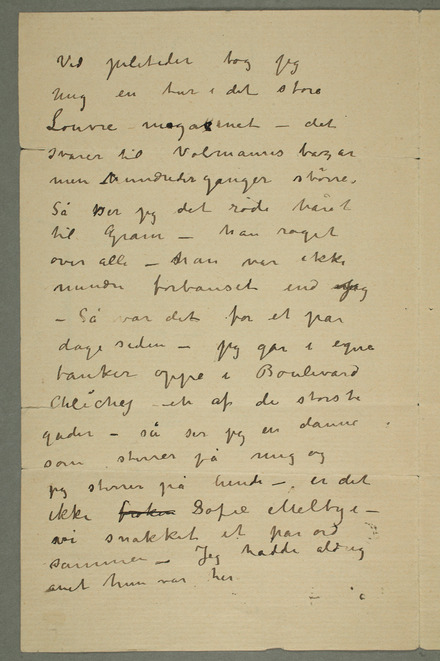 Ved juletider tog jeg
mig en tur i det store
Louvre magasinet – det
svarer til Volmanns bazar
men hundreder ganger større.
Så ser jeg det røde håret
til Gram – han raget
over alle – han var ikke
mindre forbauset end jeg
– Så var det for et par
dage siden – jeg går i egne
tanker oppe i Boulevard
Clichy – et af de største
gader – så ser jeg en dame
som stirrer på mig og
jeg stirrer på hende – er det
ikke frøken Sofie Melbye –
vi snakket et par ord
sammen – Jeg hadde aldrig
anet hun var her.